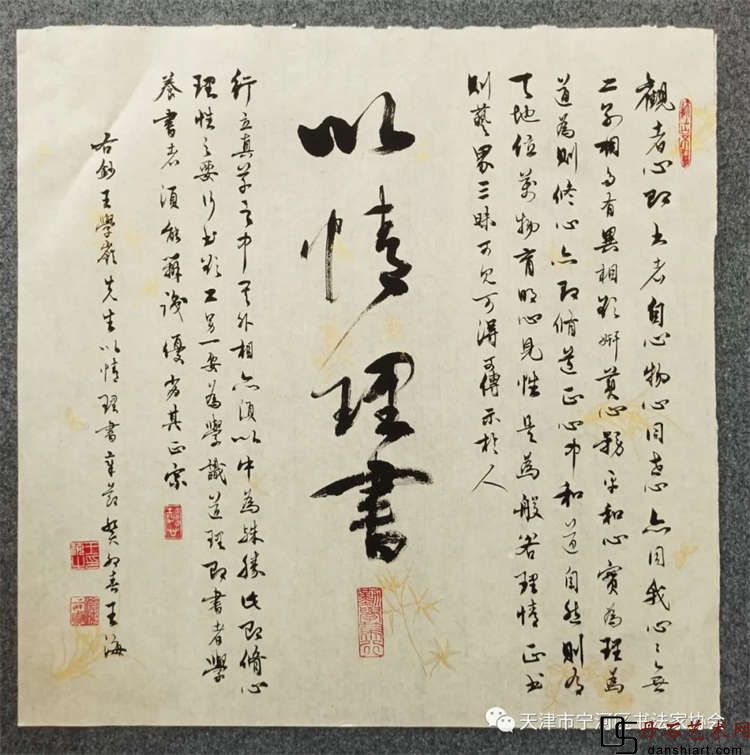 觀者心即书者自心物心同志心亦同我心心無
二别相為有異相妍莫心務平和心實為理為
道為則修心亦即脩道正心中和道自然則有
天地位萬物育明心見性是為般若理情正书
则藝界三昧可見可得可傳示於人
以情理書
行立真草言中其外相亦須以中為殊勝此即脩心
理性之要行书工另一要為學識道理即書者學
養書者須能辨識優劣其正宗
右鈔王學嶺先生以情理書章節癸卯春王海
天津市宁河区书法家协会
丹石艺术网
danshiart.com